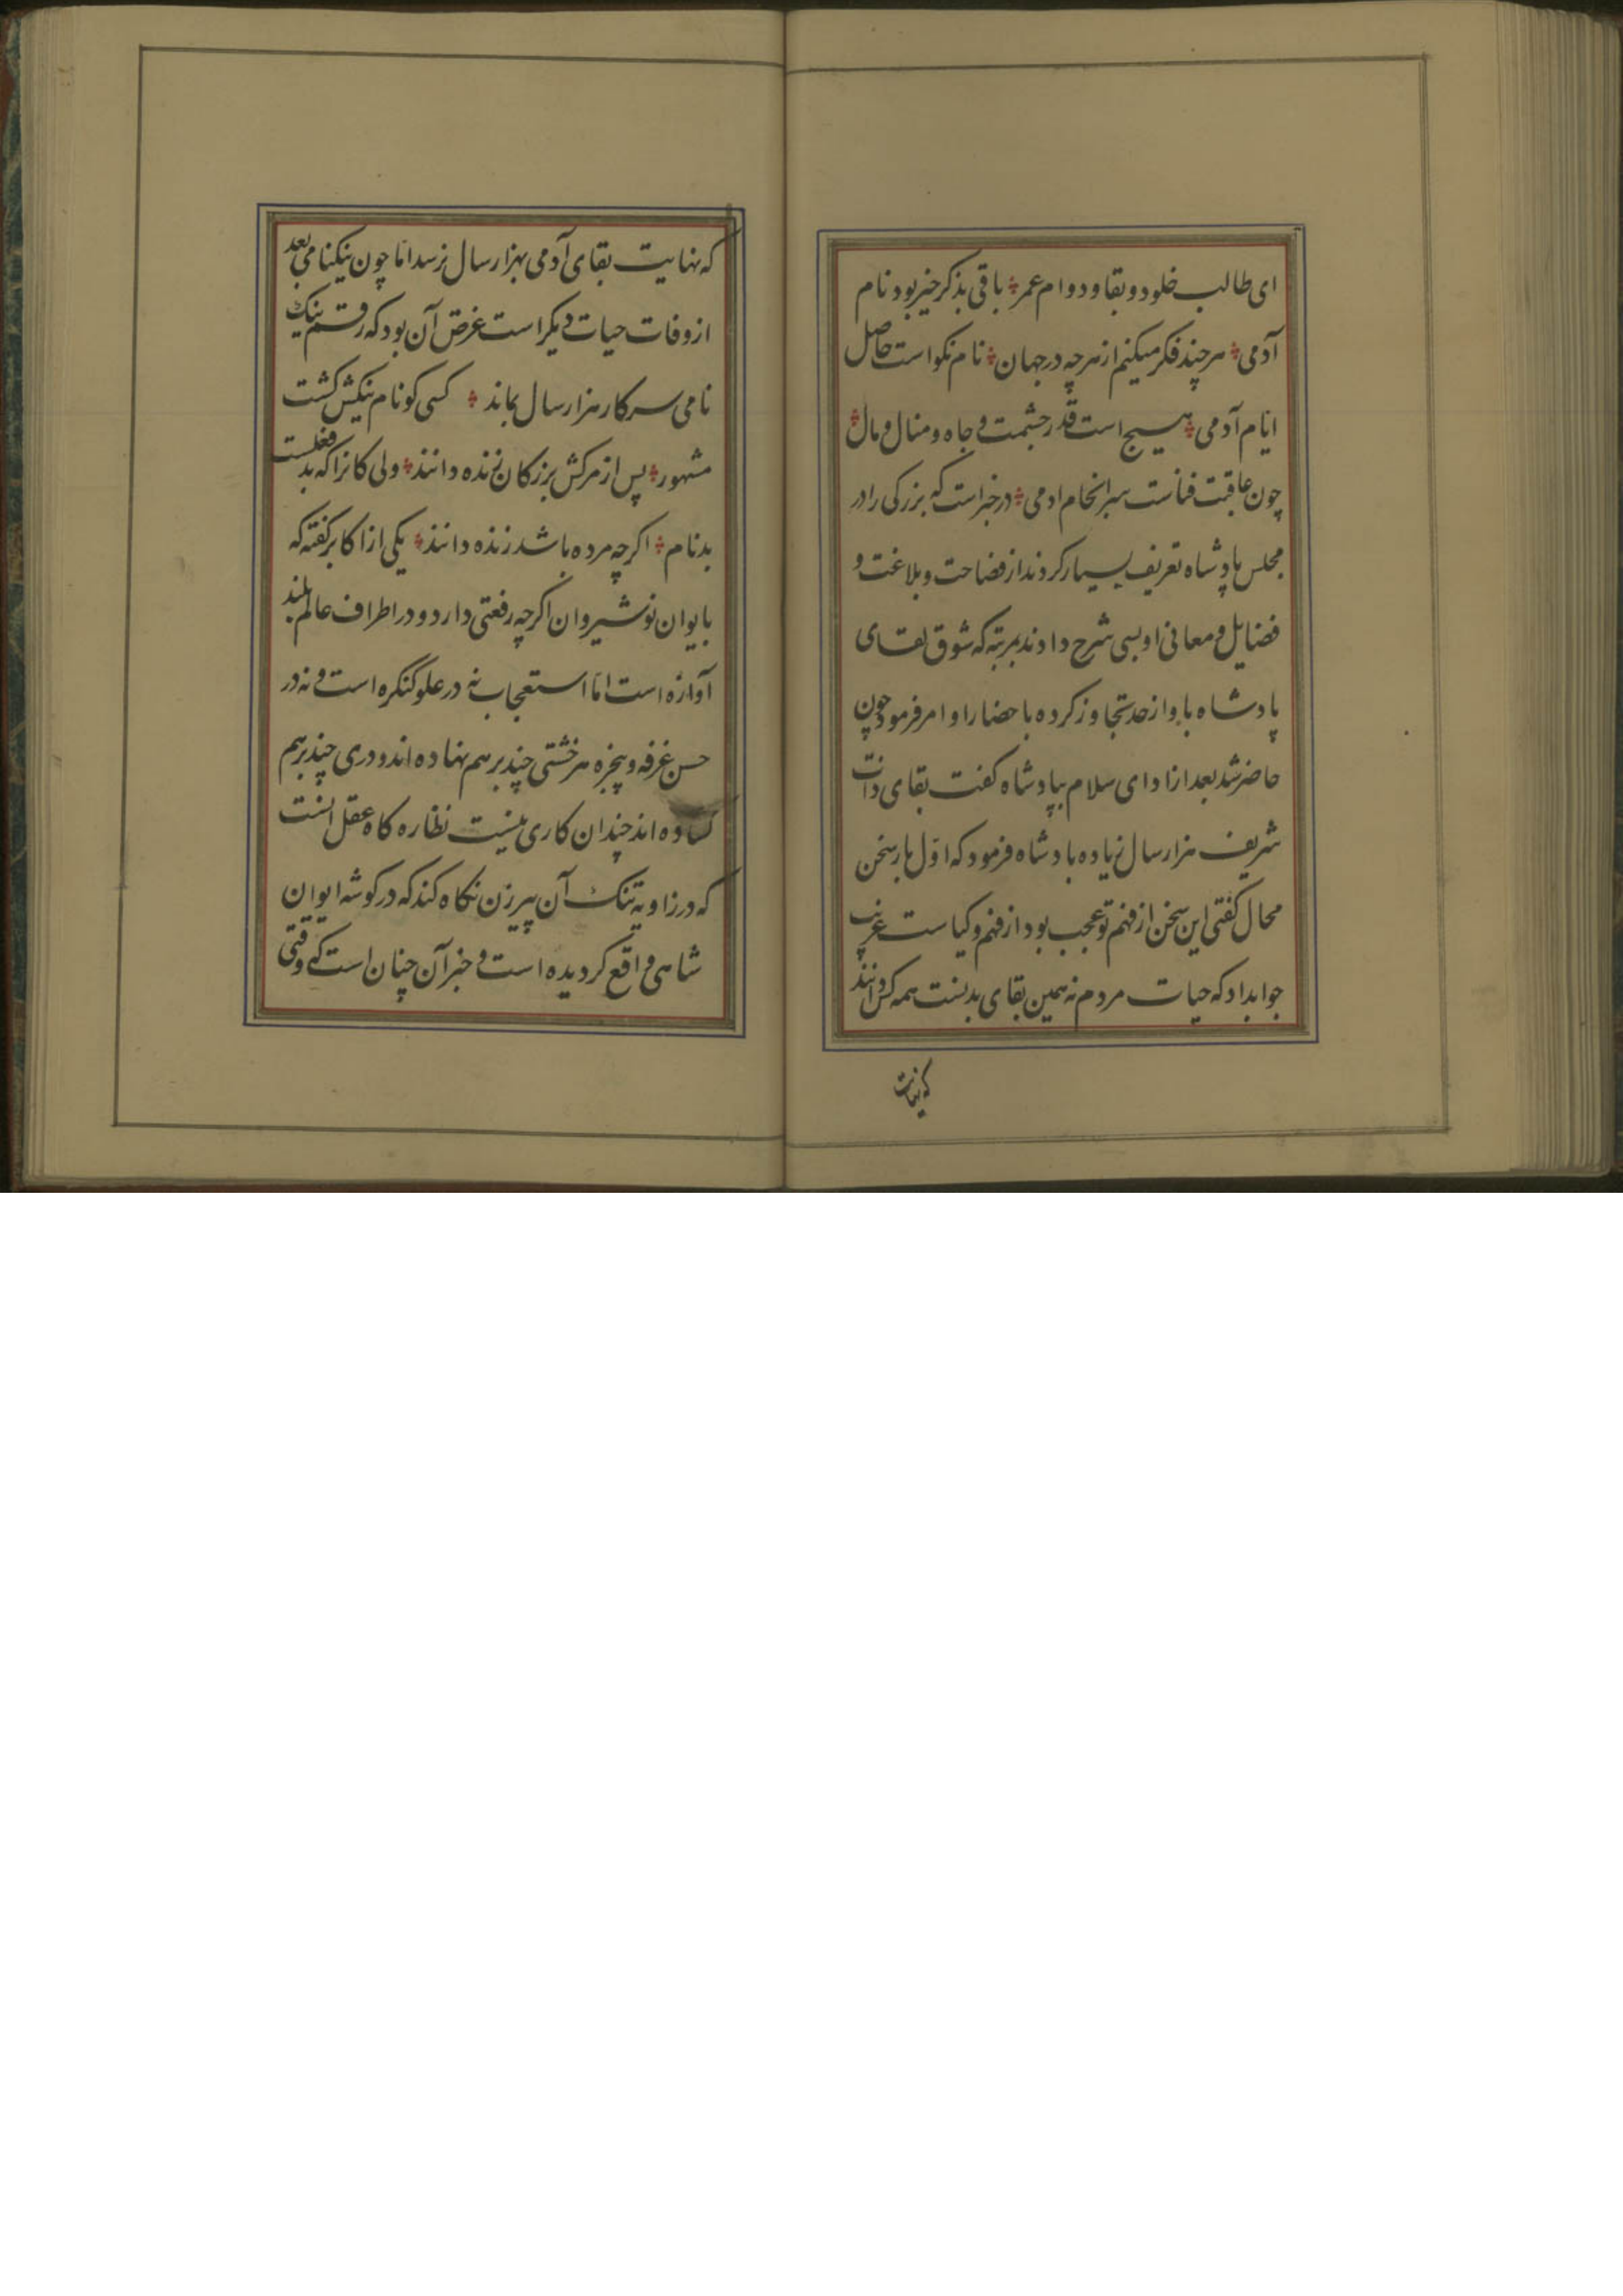 ای طالب خلود و بقا و دوام عمر ؞ باقی بذکر خیر بود نام
آدمی ؞ هر چند فکر میکنم از هر چه در جهان ؞ نام نکو است حاصل
ایام آدمی ؞ هیچ است قدر حشمت و جاه و منال و مال ؞
چون عاقبت فناست سرانجام ادمی ؞ در خبر است که بزرکی را در
مجلس پادشاه تعریف بسیار کردند از فصاحت و بلاغت و
فضایل و معانی او بسی شرح دادند بمرتبه که شوق لقای
پادشاه باو از حد تجاوز کرده باحضار او امر فرمود چون
حاضر شد بعد از ادای سلام بپادشاه کفت بقای ذات
شریف هزار سال زیاده باد شاه فرمود که اوّل بار سخن
محال کفتی این سخن از فهم تو عجب بود از فهم و کیاست غریب
جواب داد که حیات مردم نه همین بقای بدنست همه کس دانند
که نهایت
که نهایت بقای آدمی بهزار سال نرسد امّا چون نیکنامی بعد
از وفات حیات دیکر است غرض آن بود که رقم نیک
نامی سرکار هزار سال بماند ؞ کسی کو نام نیکش کشت
مشهور ؞ پس از مرکش بزرکان زنده دانند ؞ ولی کانرا که بد فعلست
بدنام ؞ اکر چه مرده باشد زنده دانند ؞ یکی از اکابر کفته که
بایوان نوشیروان اکر چه رفعتی دارد و در اطراف عالم بلند
آوازه است امّا استعجاب نه در علو کنکره است و نه در
حسن غرفه و پنجره هر خشتی چند بر هم نهاده اند و دری چند بر هم
کشاده اند چندان کاری نیست نظاره کاه عقل آنست
که در زاویه تنک آن پیرزن نکاه کند که در کوشه ایوان
شاهی واقع کردیده است و خبر آن چنان است که وقتی